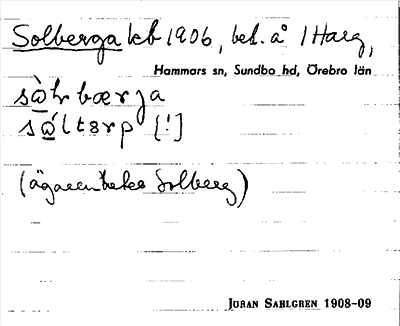 Solberga kb 1906, bel. å 1 Harg,
Hammars sn, Sundbo hd, Örebro län
sὼlrbærja
sώltɜrp [!]
(ägaren heter Solberg)
JOHAN SAHLGREN 1908-09